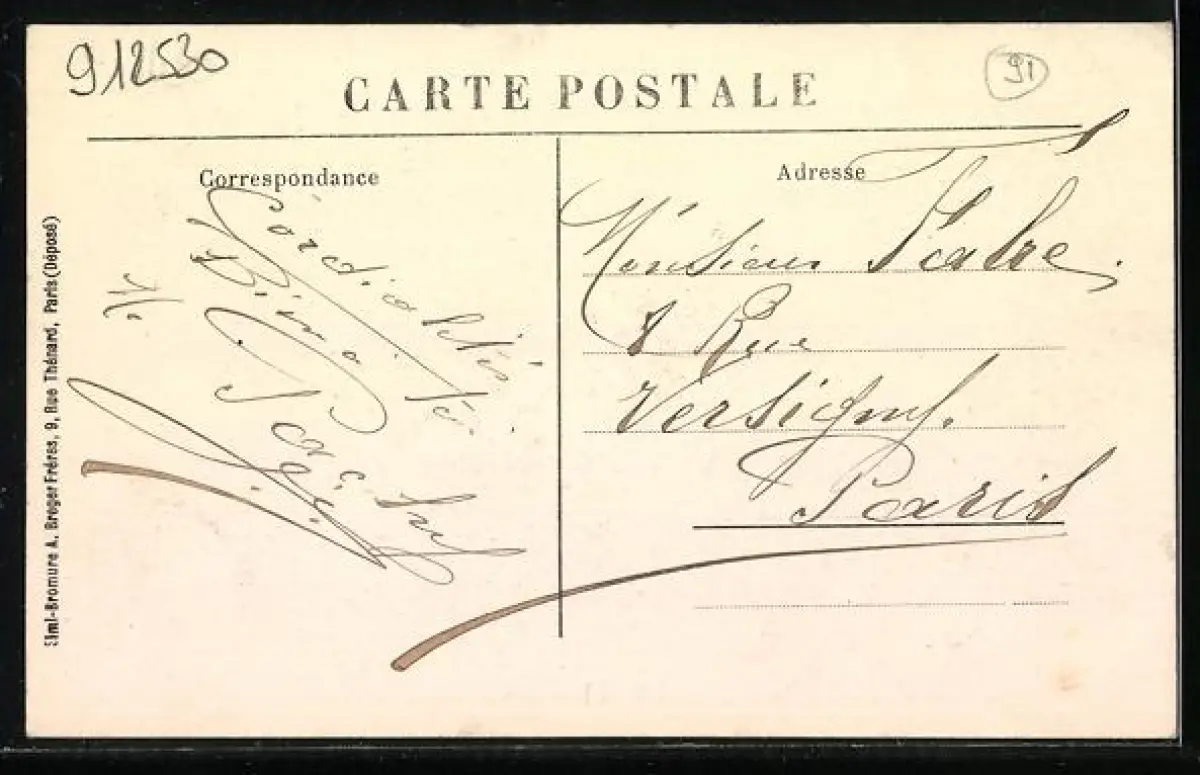 912530
91
CARTE POSTALE
Correspondance
Adresse
Simi-Bromure A. Breger Frères, 9, Rue Thénard, Paris (Déposé)
Cordialités
Monsieur Fabre.
8 Rue
Versigny.
Paris